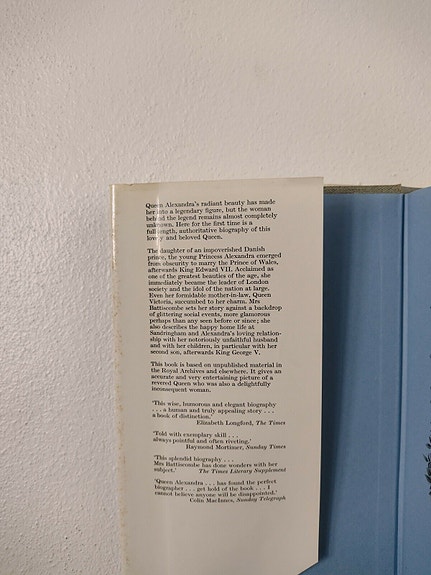 Queen Alexandra's radiant beauty has made
her into a legendary figure, but the woman
behind the legend remains almost completely
unknown. Here for the first time is a
full length, authoritative biography of this
lovely and beloved Queen.
The daughter of an impoverished Danish
prince, the young Princess Alexandra emerged
from obscurity to marry the Prince of Wales,
afterwards King Edward VII. Acclaimed as
one of the greatest beauties of the age, she
immediately became the leader of London
society and the idol of the nation at large.
Even her formidable mother-in-law, Queen
Victoria, succumbed to her charm. Mrs
Battiscombe sets her story against a backdrop
of glittering social events, more glamorous
perhaps than any seen before or since; she
also describes the happy home life at
Sandringham and Alexandra's loving relation-
ship with her notoriously unfaithful husband
and with her children, in particular with her
second son, afterwards King George V.
This book is based on unpublished material in
the Royal Archives and elsewhere. It gives an
accurate and very entertaining picture of a
revered Queen who was also a delightfully
inconsequent woman.
'This wise, humorous and elegant biography
. . . a human and truly appealing story . . .
a book of distinction.'
Elizabeth Longford, The Times
'Told with exemplary skill . . .
always pointful and often riveting.'
Raymond Mortimer, Sunday Times
'This splendid biography . . .
Mrs Battiscombe has done wonders with her
subject.' The Times Literary Supplement
'Queen Alexandra . . . has found the perfect
biographer . . . get hold of the book . . . I
cannot believe anyone will be disappointed.'
Colin MacInnes, Sunday Telegraph